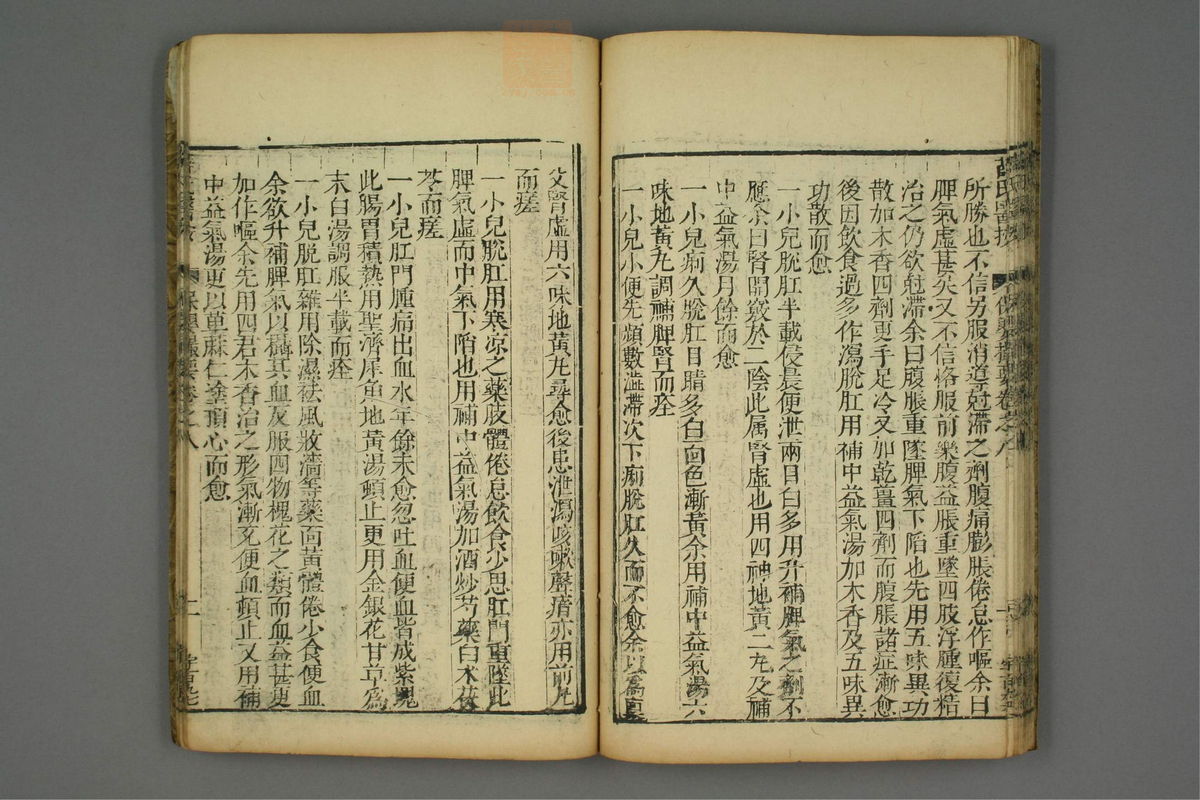 所勝也不信另服消導尅滯之劑腹痛膨脹倦怠作嘔余曰
脾氣虛甚矣又不信恪服前藥腹益脹重墜四肢浮腫復精
治之仍欲尅滯余曰腹脹重墜脾氣下陷也先用五味異功
散加木香四劑更手足冷又加乾薑四劑而腹脹諸症漸愈
後因飲食過多作瀉脫肛用補中益氣湯加木香及五味異
功散而愈
一小兒脫肛半載侵晨便泄兩目白多用升補脾氣之劑不
應余曰腎開竅於二陰此属腎虛也用四神地黃二丸及補
中益氣湯月餘而愈
一小兒痢久脫肛目睛多白面色漸黃余用補中益氣湯六
味地黃丸調補脾腎而痊
一小兒小便先頻數澁滯次下痢脫肛久而不愈余以為稟
父腎虛用六味地黃丸尋愈後患泄瀉咳嗽聲瘖亦用前丸
而痊
一小兒脫肛用寒涼之藥肢體倦怠飲食少思肛門重墜此
脾氣虛而中氣下陷也用補中益氣湯加酒炒芍藥白木茯
苓而痊
一小兒肛門腫痛出血水年餘未愈忽吐血便血皆成紫塊
此腸胃積熱用聖濟犀角地黃湯頓止更用金銀花甘草為
末白湯調服半載而痊
一小兒脫肛雜用除濕祛風收濇等藥面黃體倦少食便血
余欲升補脾氣以攝其血反服四物槐花之類而血益甚更
加作嘔余先用四君木香治之形氣漸充便血頓止又用補
中益氣湯更以萆麻仁塗頂心而愈